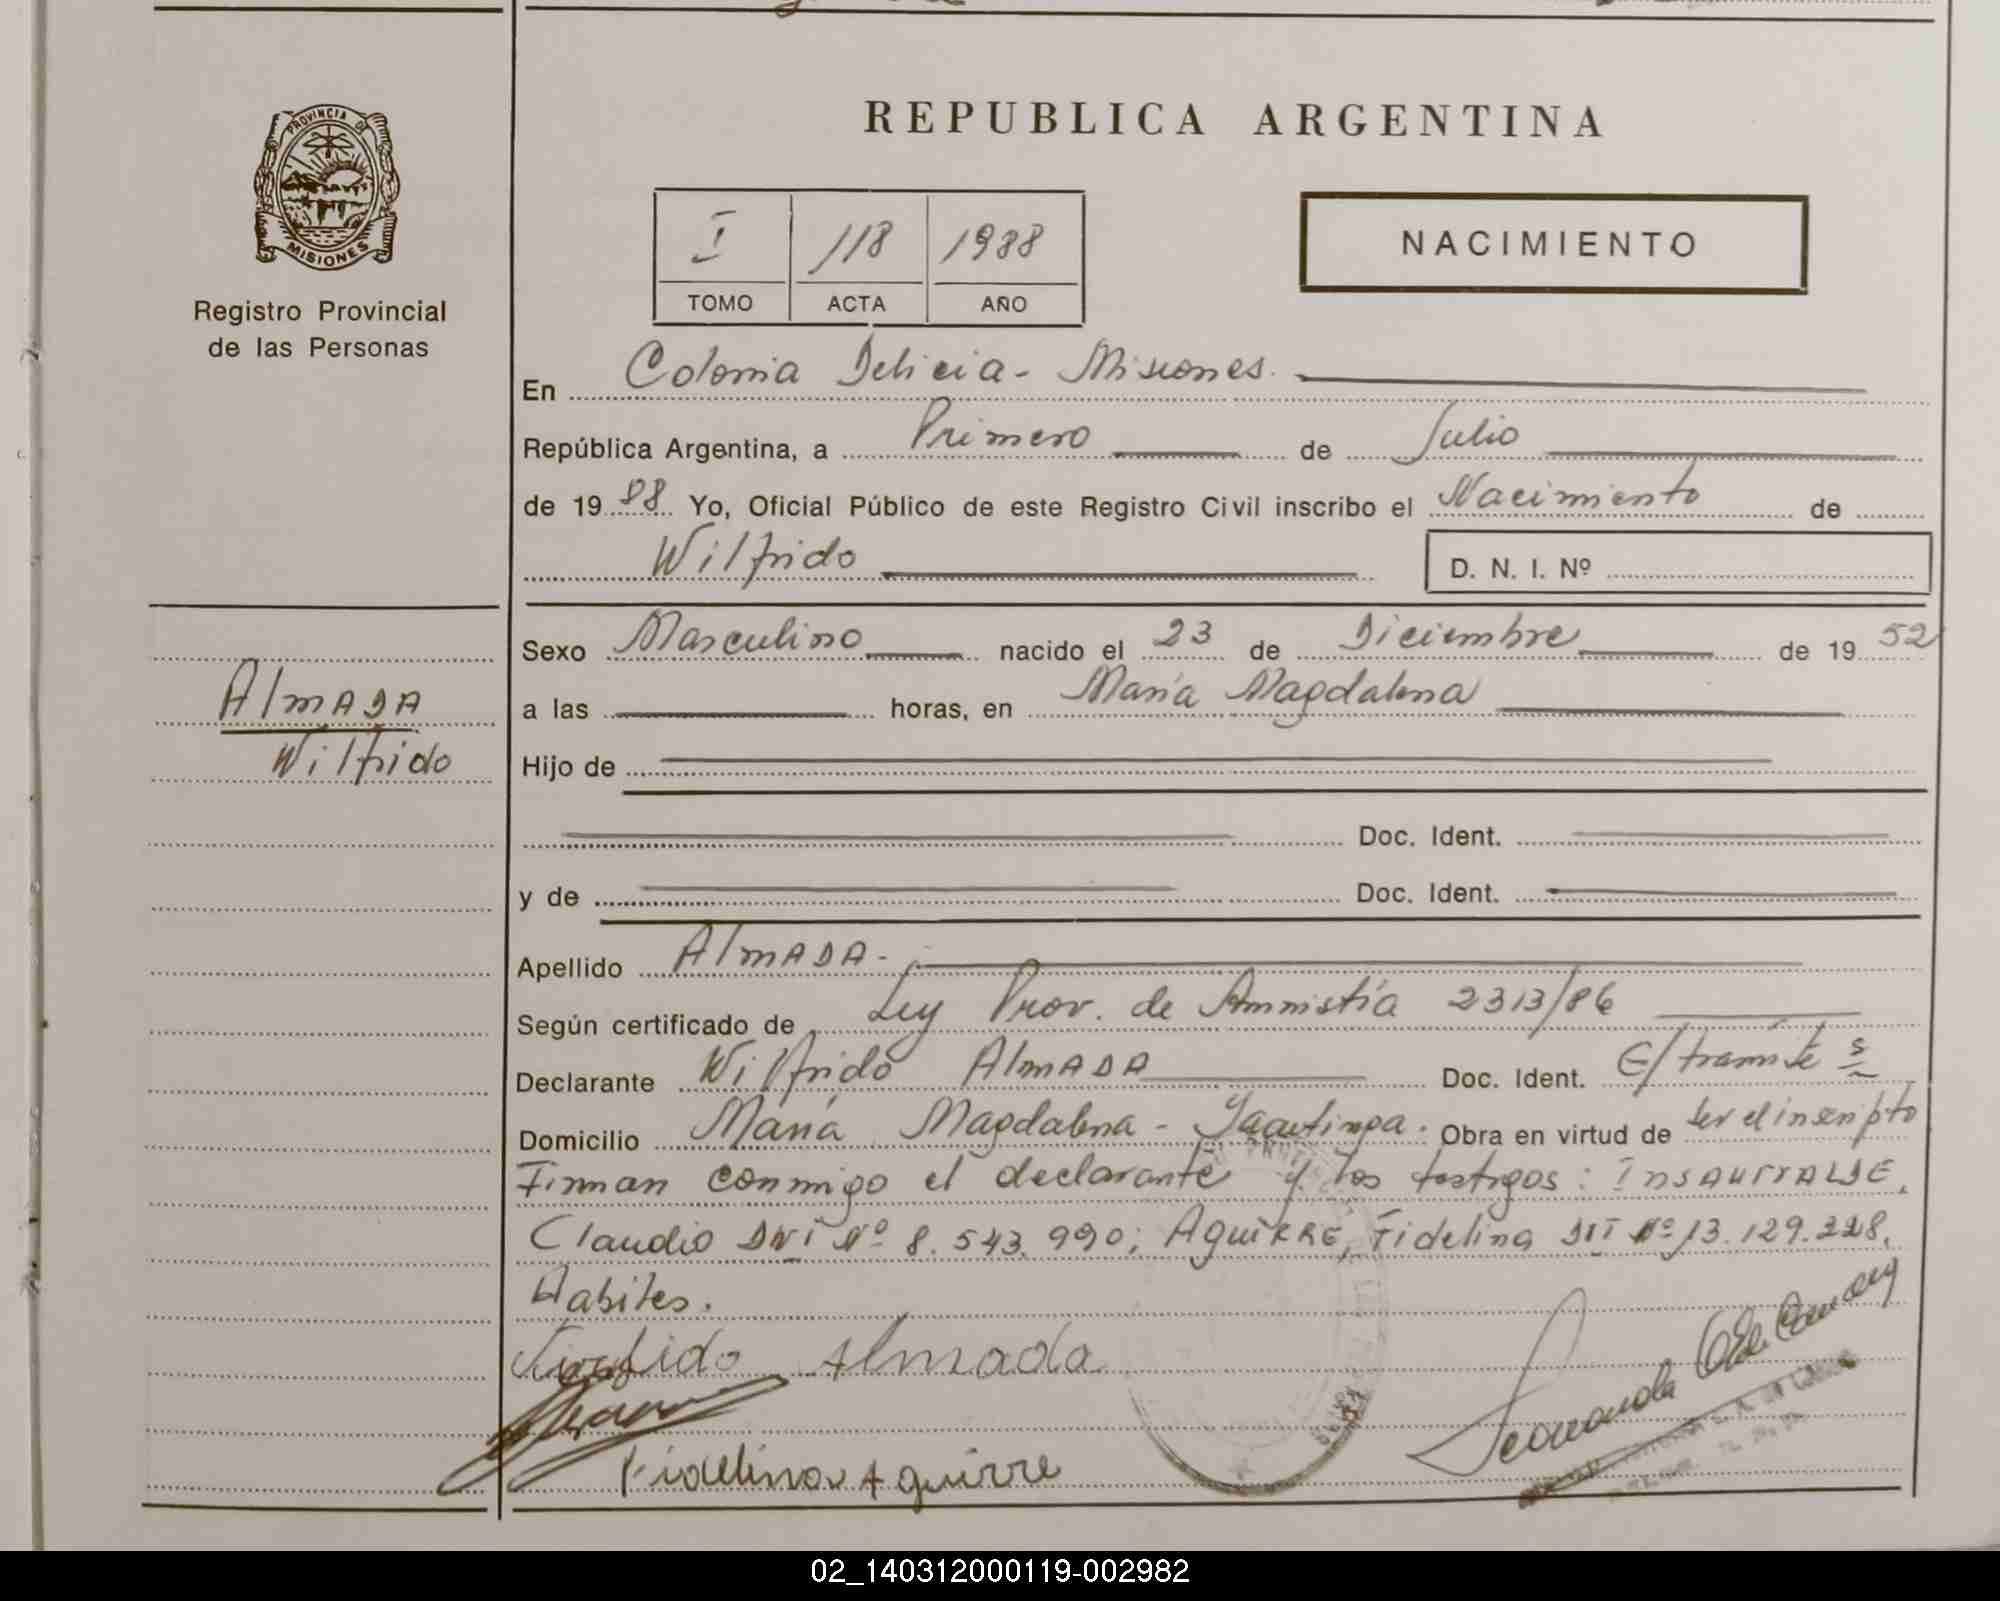 REPUBLICA ARGENTINA
PROVINCIA DE
MISIONES
Registro Provincial
de las Personas
I 118 1988
TOMO ACTA AÑO
NACIMIENTO
En Colonia Delicia - Misiones.
República Argentina, a Primero de Julio
de 19 88 Yo, Oficial Público de este Registro Civil inscribo el Nacimiento de
Wilfrido D. N. I. Nº
Sexo Masculino nacido el 23 de Diciembre de 19 52
Almada
Wilfrido
a las horas, en María Magdalena
Hijo de
y Doc. Ident.
y de Doc. Ident.
Apellido Almada.-
Según certificado de Ley Prov. de Amnistía 2313/86
Declarante Wilfrido Almada Doc. Ident. E/tramite
Domicilio María Magdalena - Obra en virtud de ser el inscripto
Firman conmigo el declarante y los testigos: Insaurralde,
Claudio DNI Nº 8.543.990; Aguirre, Fidelina Nº 13.129.
Habiles.
Wilfrido Almada
Fidelina Aguirre
02_140312000119-002982